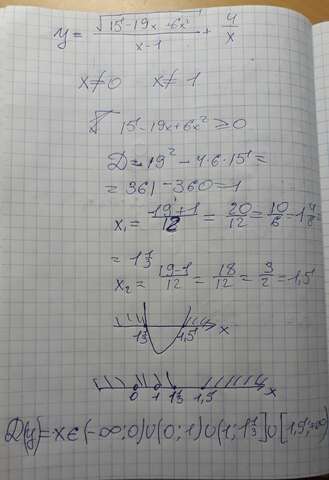 y = √(15 - 19x + 6x²) / (x - 1) + 4/x
x ≠ 0 x ≠ 1
15 - 19x + 6x² ≥ 0
D = 19² - 4·6·15 =
= 361 - 360 = 1
x₁ = (19 + 1)/12 = 20/12 = 10/6 = 1 4/6 =
= 1 1/3
x₂ = (19 - 1)/12 = 18/12 = 3/2 = 1,5
1 1/3 1,5 x
0 1 1 1/3 1,5 x
D(y) = x ∈ (-∞; 0) ∪ (0; 1) ∪ (1; 1 1/3] ∪ [1,5; +∞)